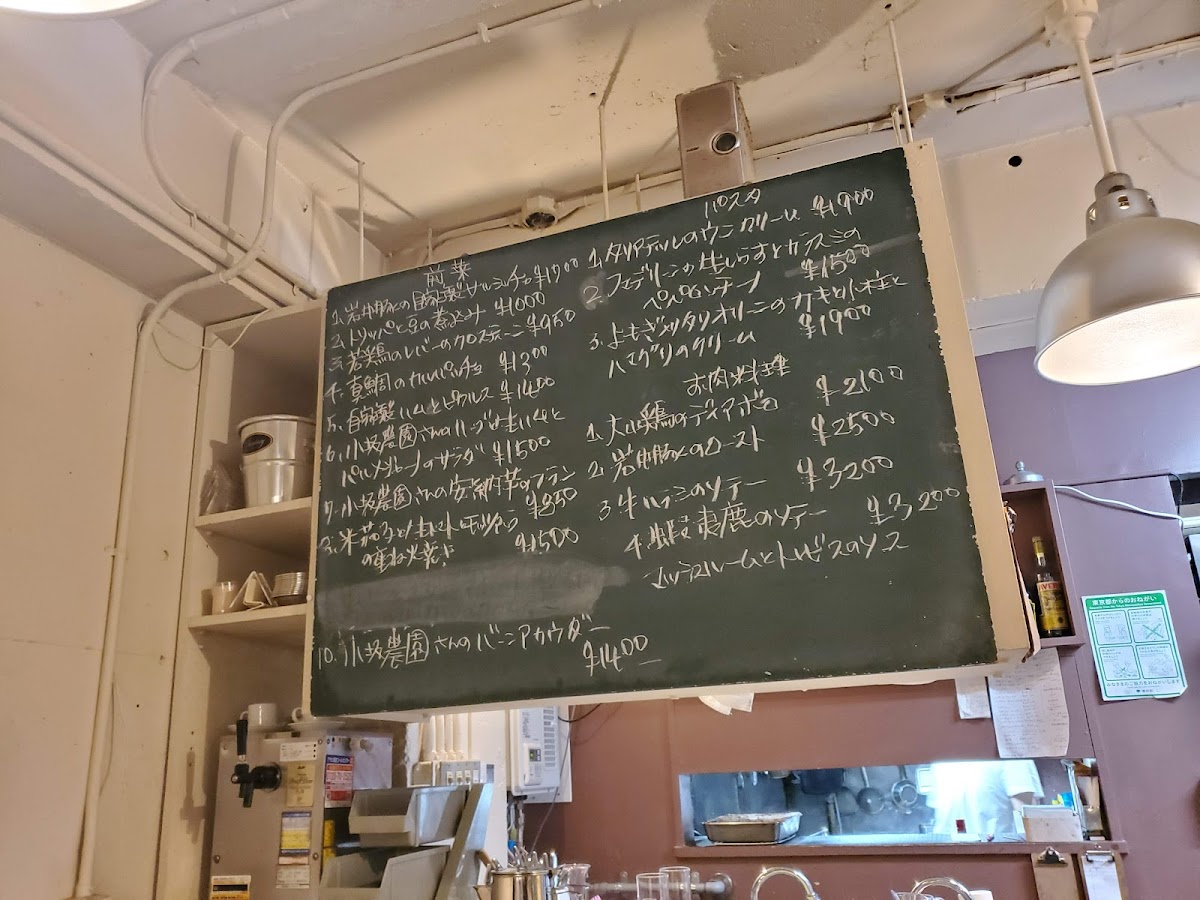 前菜
1. 岩中豚の自家製サルシッチャ ¥1900
2. トリッパと豆の煮込み ¥1000
3. 若鶏のレバーのクロスティーニ ¥950
4. 真鯛のカルパッチョ ¥1300
5. 自家製ハムとピクルス ¥1400
6. 小坂農園さんのハーブと生ハムと
パルメジャーノのサラダ ¥1500
7. 小坂農園さんの安納芋のフラン ¥850
米茄子と
の重ね焼き ¥1500
10. 小坂農園さんのバーニアカウダー
¥1400
パスタ
1. タリアテッレのウニクリーム ¥1900
2. フェデリーニの生しらすとカラスミの
ペペロンチーノ ¥1500
3. よもぎ入りタリオリーニのカキと小柱と
ハマグリのクリーム ¥1900
お肉料理
1. 大山鶏のディアボロ ¥2100
2. 岩中豚のロースト ¥2500
3. 牛ハラミのソテー ¥3200
4. 蝦夷鹿のソテー ¥3200
マッシュルームとトレビスのソース
東京都からのおねがい